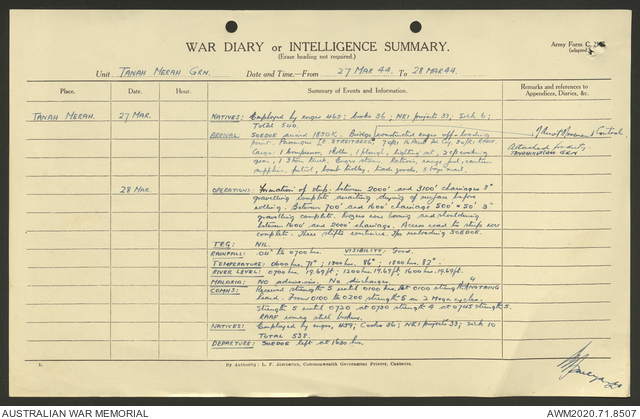 WAR DIARY or INTELLIGENCE SUMMARY.
(Erase heading not required.)
Army Form C.
(adapted)
Unit TANAH MERAH GRN. Date and Time.—From 27 MAR 44. To 28 MAR 44.
Place. Date. Hour. Summary of Events and Information. Remarks and references to Appendices, Diaries, &c.
TANAH MERAH. 27 MAR. NATIVES: Employed by engrs 463; Cooks 36; NEI projects 33; Sick 8;
Total 540.
ARRIVAL: SOEDOE arrived 1830K. Bridge constructed engrs offloading
point.
Cargo. 1 Compressor, 1 plough, lighting set,
gear, 1 3 ton truck, Engrs stores, Rations, range fuel, canteen
supplies, petrol, trade goods, 5 bags mail.
Movement Control
Attached for duty
TANAHMERAH GRN
28 MAR. OPERATIONS: Formation of strip between 2000' and 3100' chainages 3"
gravelling complete awaiting drying of surface before
rolling. Between 700' and 1600' chainage 500' x 50' 3"
gravelling complete. Engrs now boxing and shouldering
between 1600' and 2000' chainage. Access road to strip now
complete. Three shifts continue. Tps unloading SOEDOE.
TRG: NIL.
RAINFALL: .04" to 0700 hrs. VISIBILITY: Good.
TEMPERATURE: 0600 hrs. 71°; 1200 hrs. 86°; 1800 hrs. 82°.
RIVER LEVEL: 0700 hrs. 19.69ft; 1200 hrs. 19.69ft. 1600 hrs. 19.69ft.
MALARIA: No admissions. No discharges.
COMNS: Received strength 5 until 0100 hrs. At 0100 strength 4 NOTHING
heard. From 0100 to 0200 strength 5 on 2 Mega cycles.
Strength 5 until 0720 at 0730 strength 4 at 0745 strength 3.
RAAF
NATIVES: Employed by engrs, 459; Cooks 36; NEI projects 33; Sick 10
TOTAL 538.
DEPARTURE: SOEDOE left at 1630 hrs.
L. By Authority: L. F. JOHNSTON, Commonwealth Government Printer, Canberra.
AUSTRALIAN WAR MEMORIAL AWM2020.71.8507